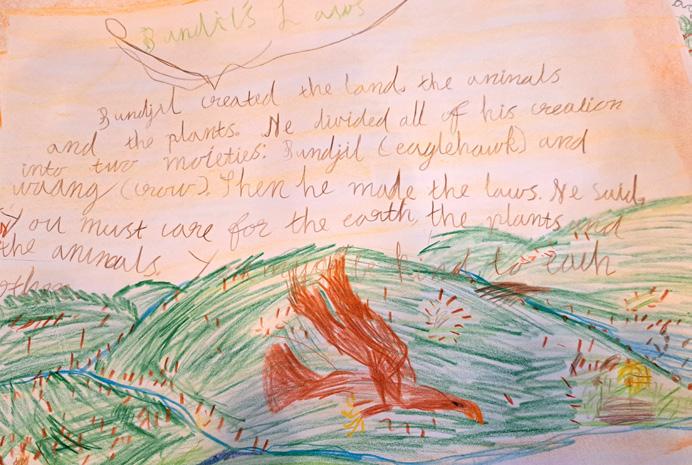 Bundjil's Laws
Bundjil created the land, the animals
and the plants. He divided all of his creation
into two moieties: Bundjil (eaglehawk) and
waang (crow). Then he made the laws. He said,
You must care for the earth, the plants and
the animals. kind to each
other